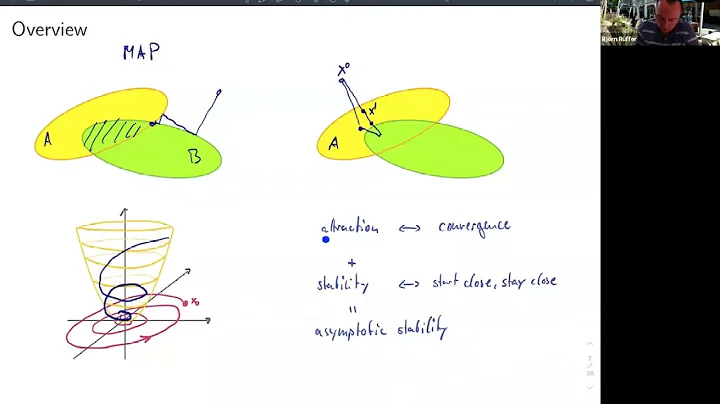 Overview
MAP
A
B
x⁰
x¹
A
x₀
attraction ↔ convergence
+
stability ↔ start close, stay close
=
asymptotic stability
Björn Rüffer